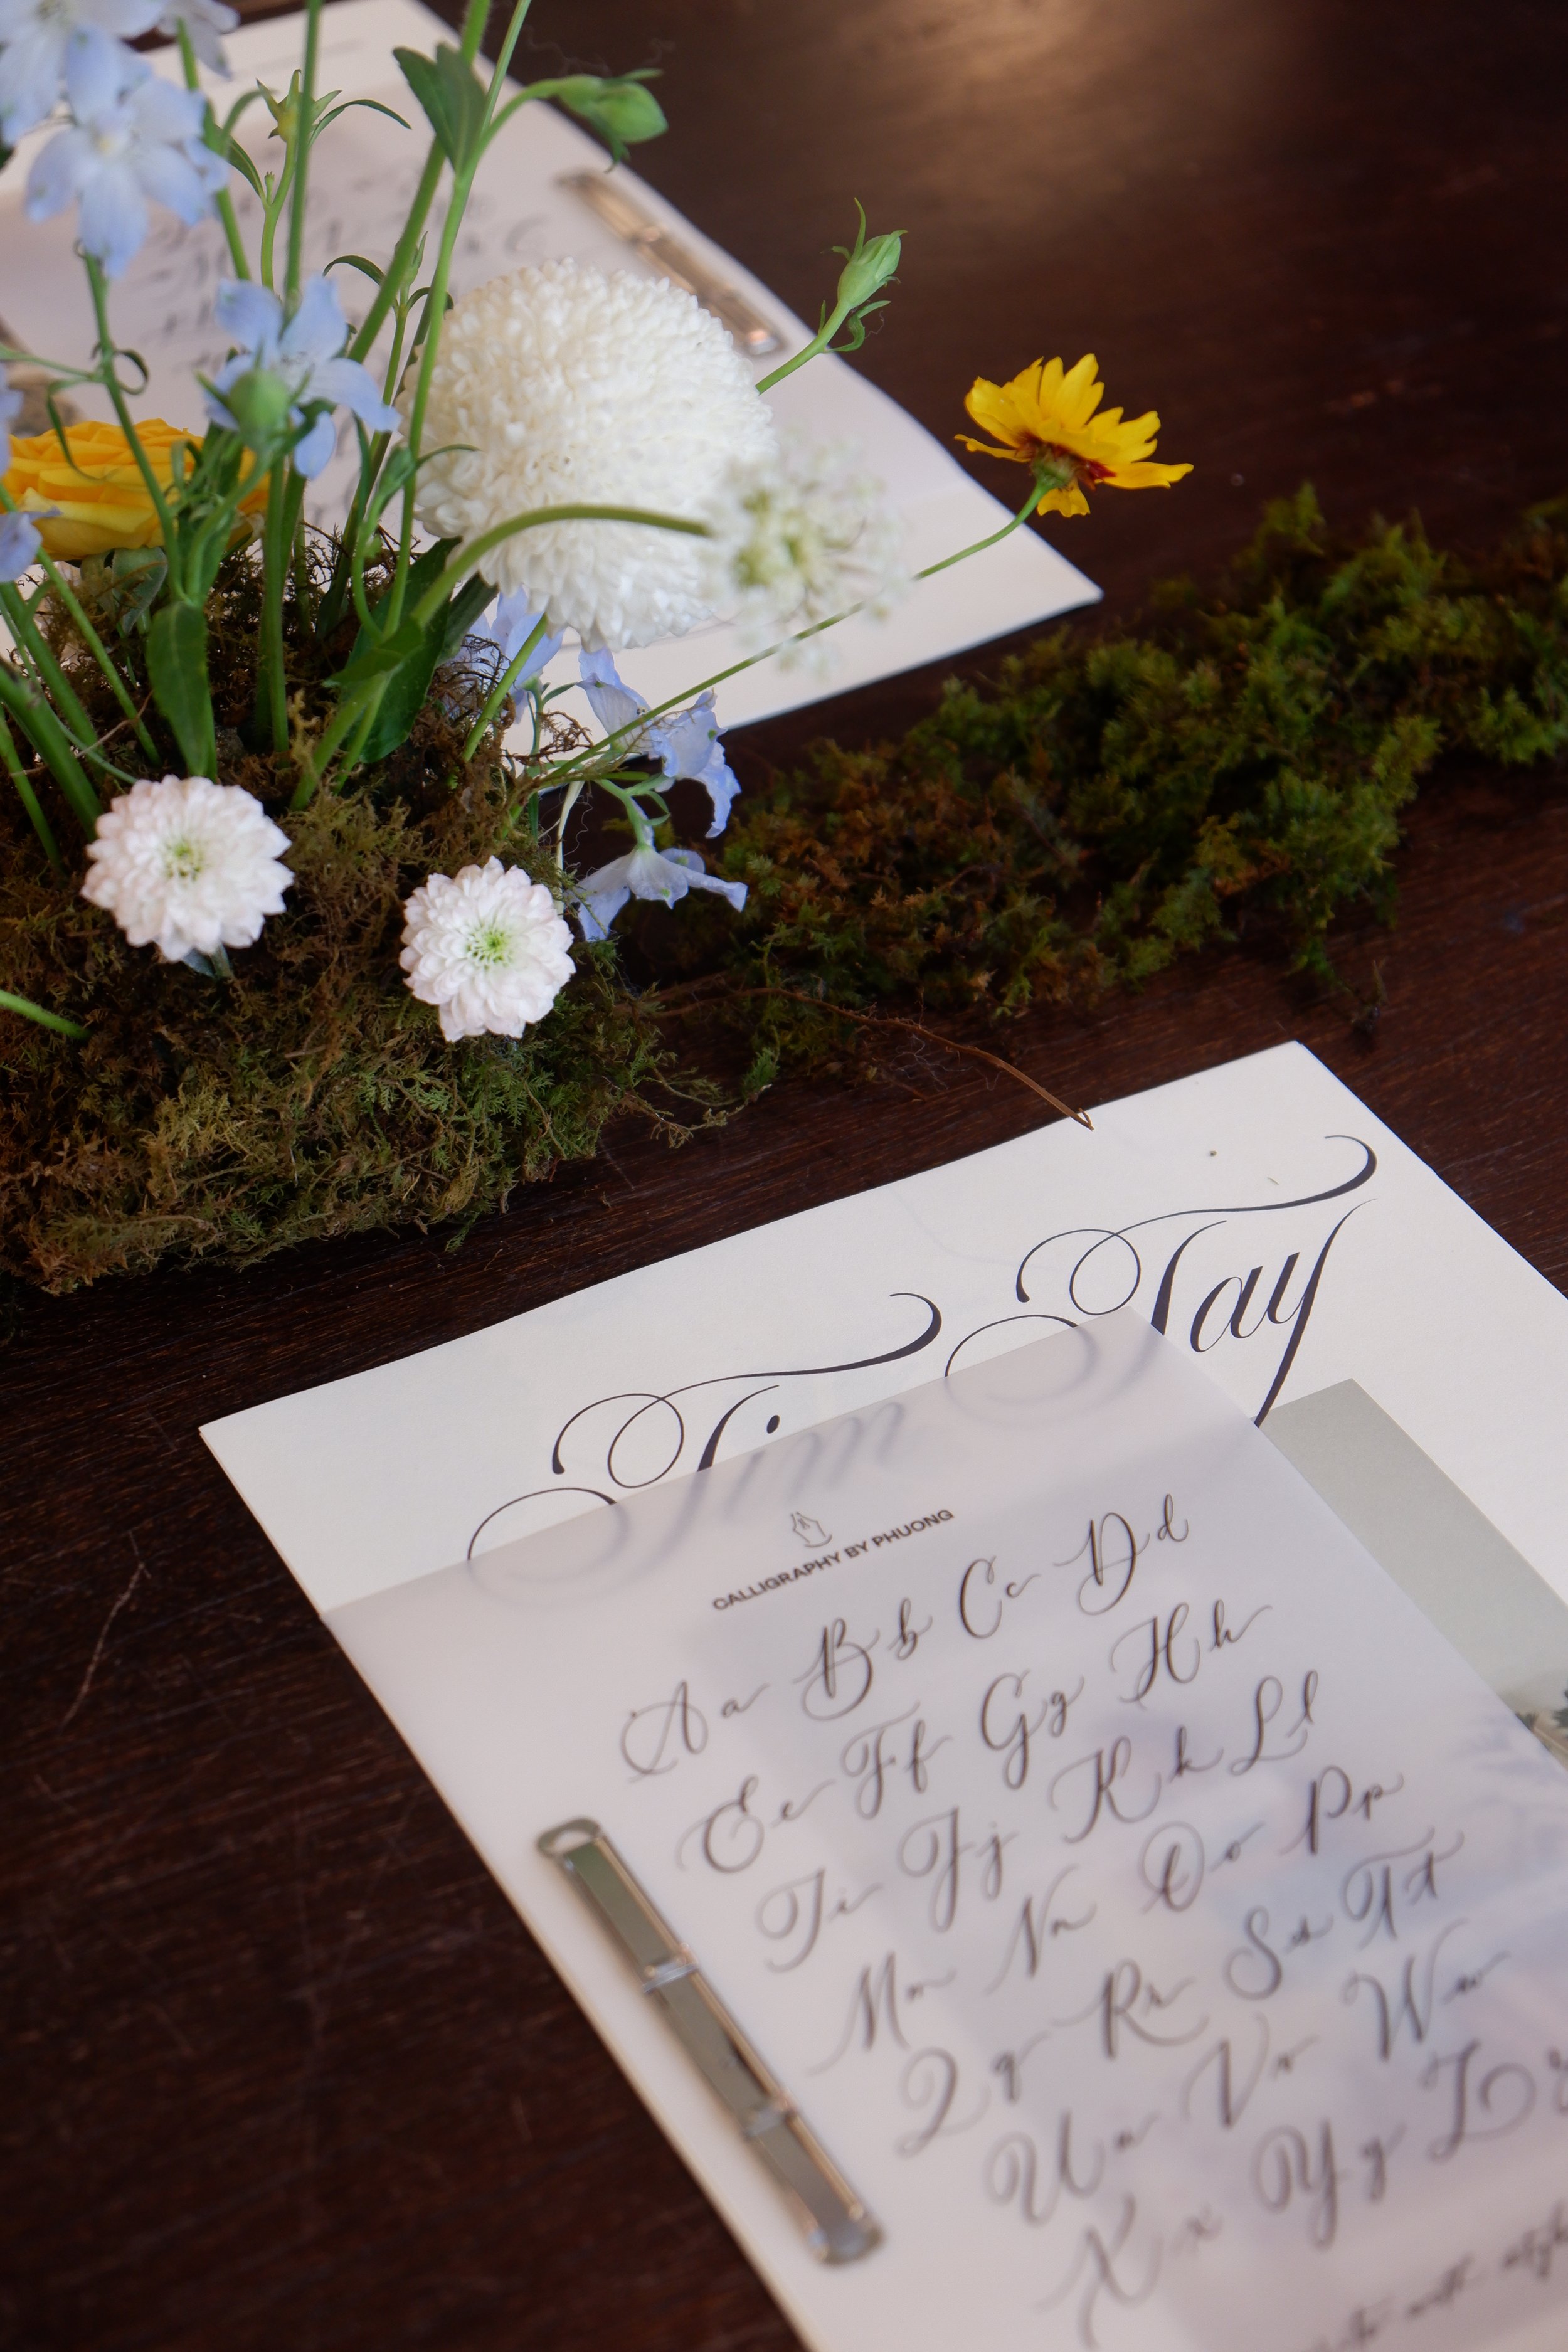 Tim Tay
CALLIGRAPHY BY PHUONG
Aa Bb Cc Dd
Ee Ff Gg Hh
Ii Jj Kk Ll
Mm Nn Oo Pp
Qq Rr Ss Tt
Uu Vv Ww
Xx Yy Zz